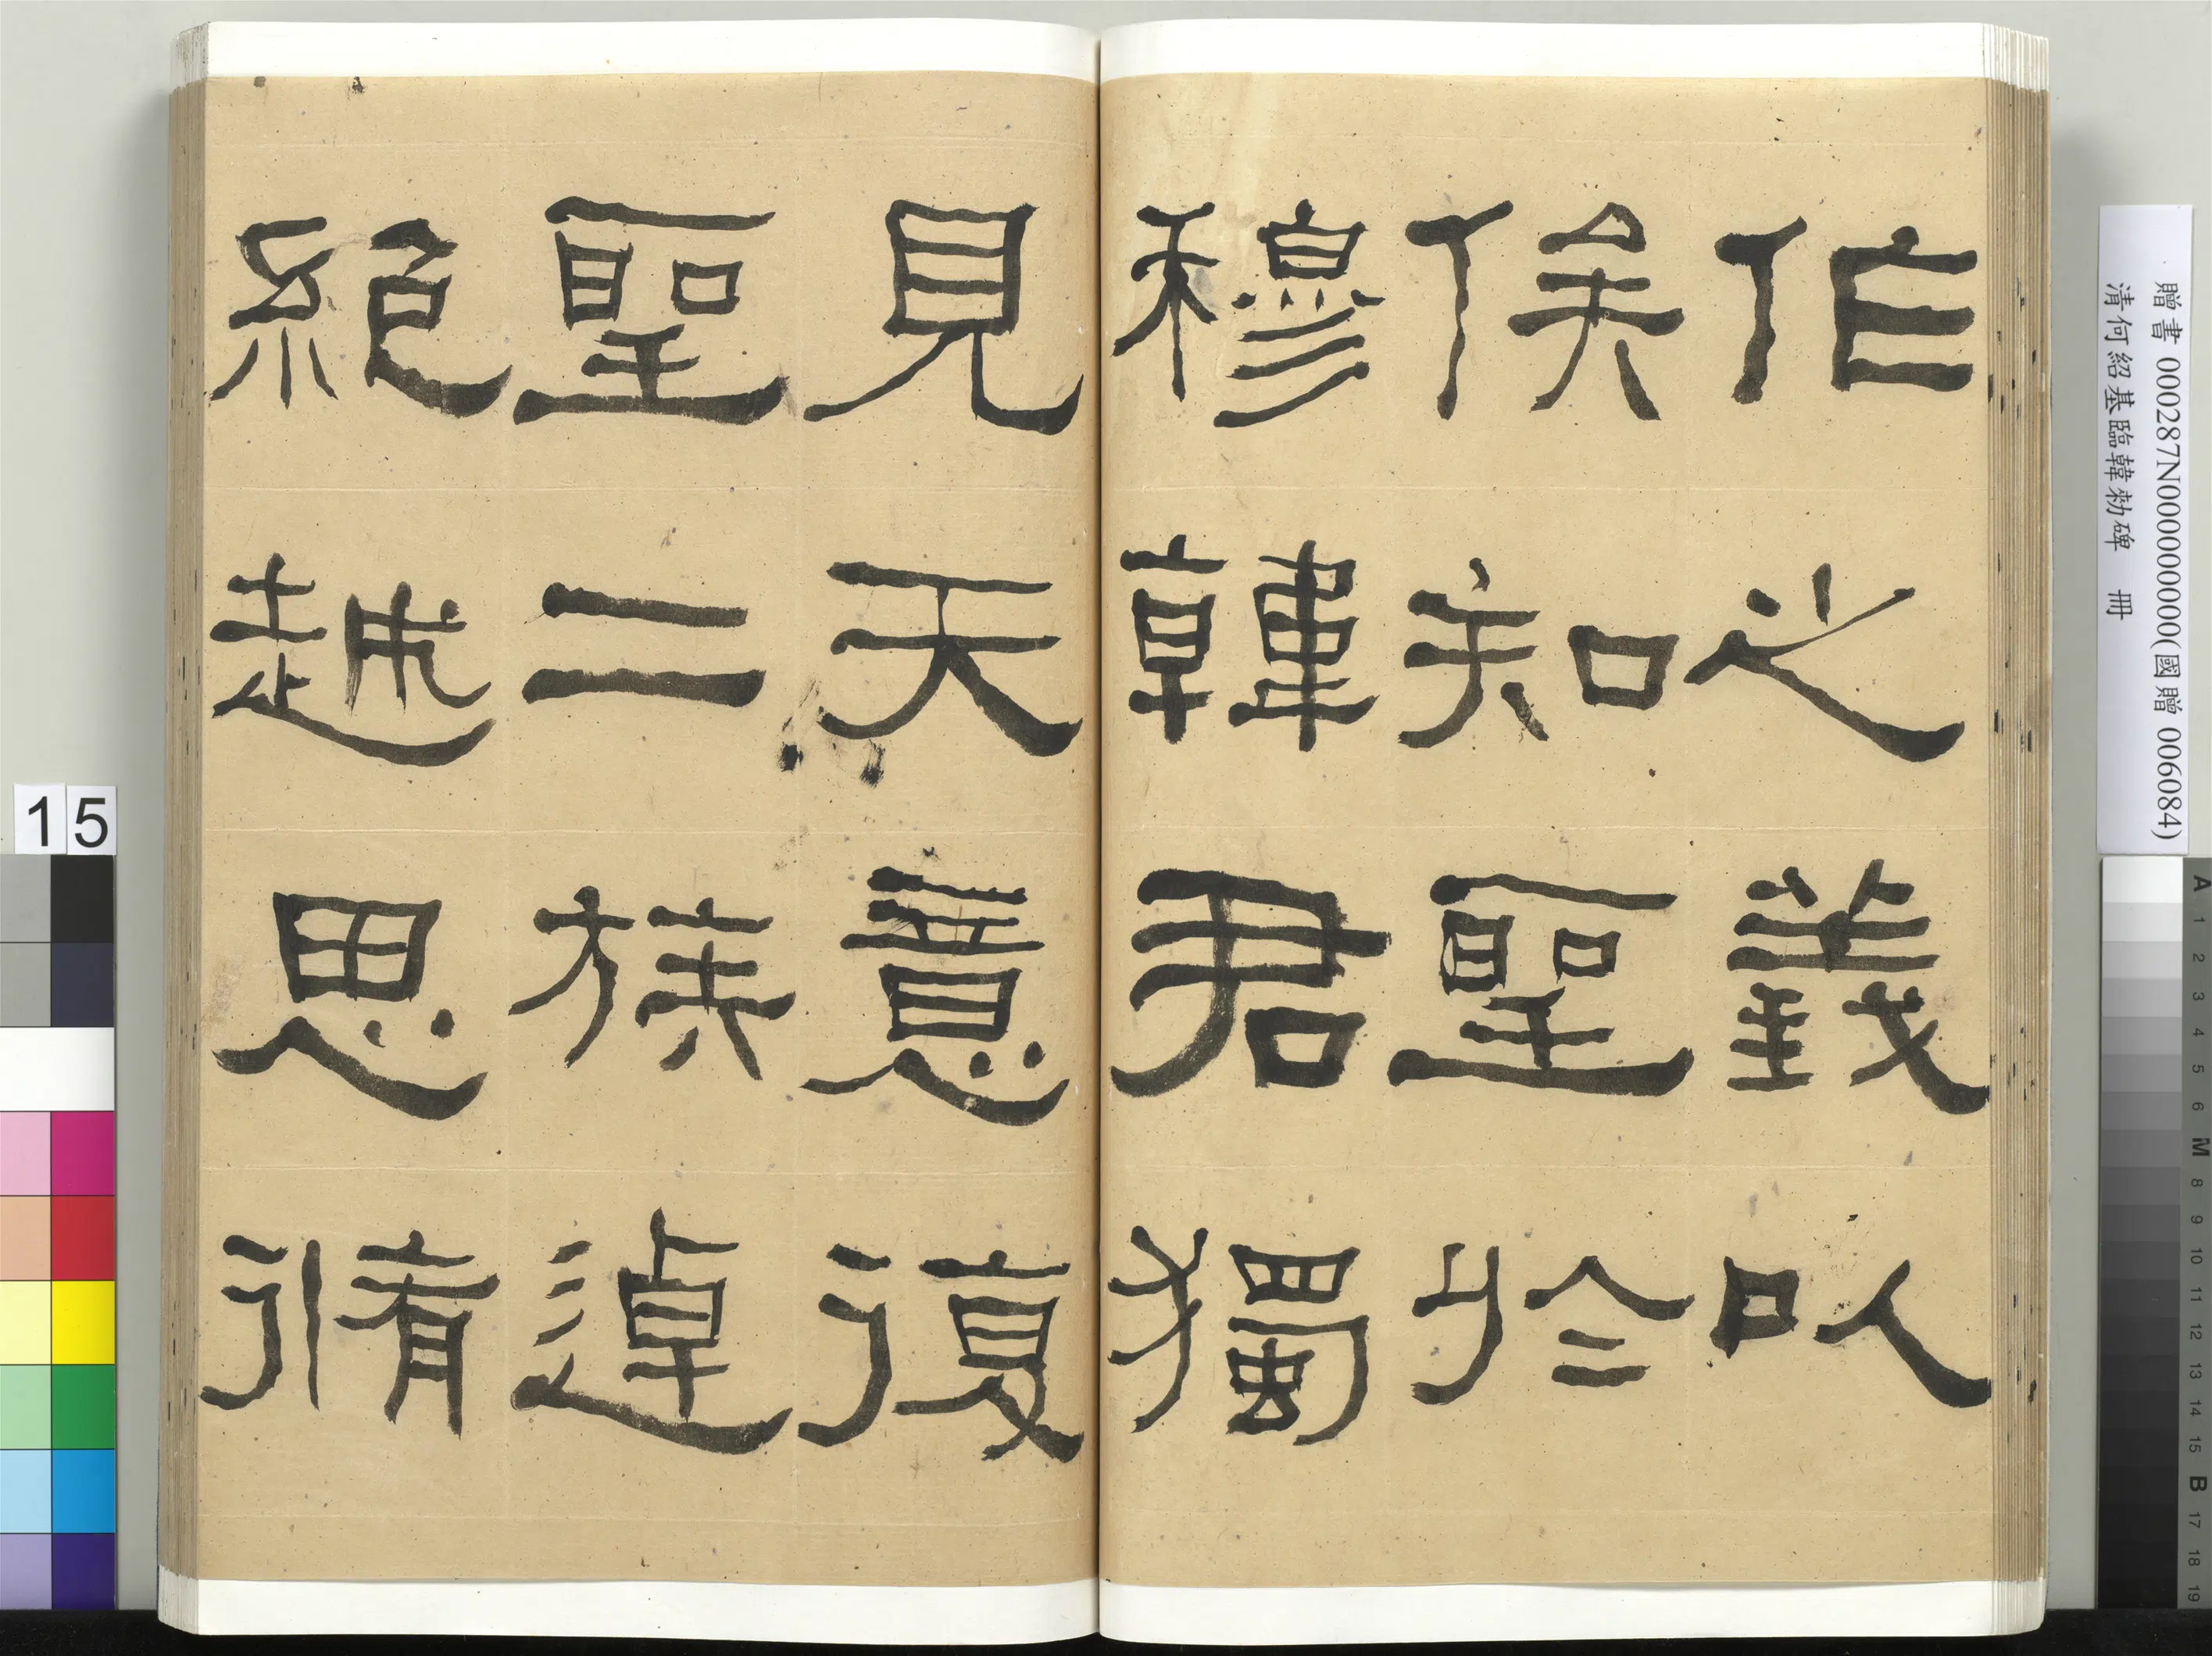 作之義以
俟知聖於
穆韓君獨
見天意復
聖二族逴
絕越思脩
贈書 000287N000000000(國贈 006084)
清何紹基臨韓勑碑 冊
15
A 1 2 3 4 5 6 M 8 9 10 11 12 13 14 15 B 17 18 19